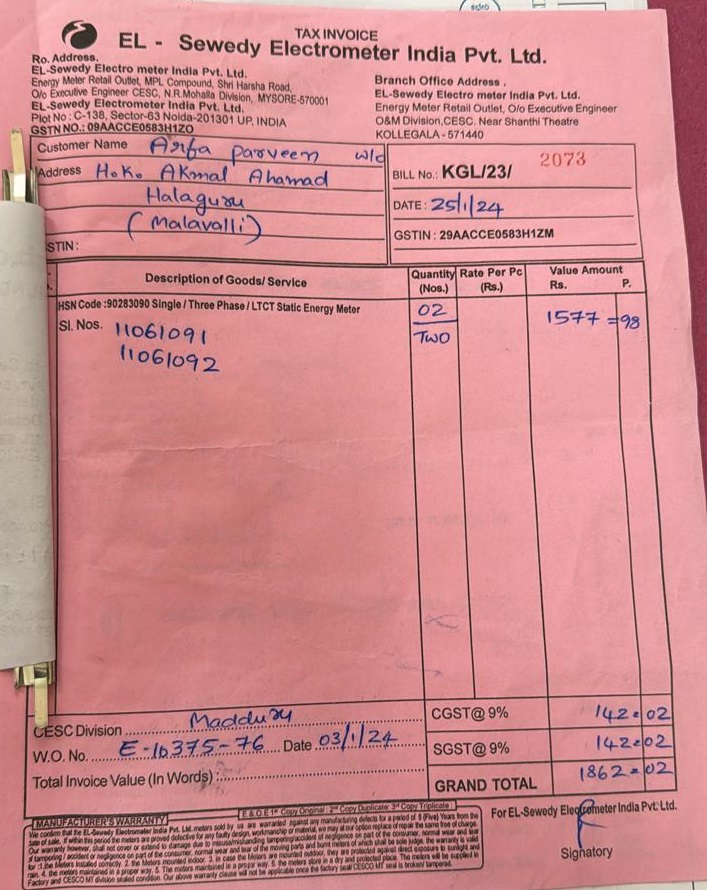 TAX INVOICE
EL - Sewedy Electrometer India Pvt. Ltd.
Ro. Address.
EL-Sewedy Electro meter India Pvt. Ltd.
Energy Meter Retail Outlet, MPL Compound, Shri Harsha Road,
O/o Executive Engineer CESC, N.R.Mohalla Division, MYSORE-570001
EL-Sewedy Electrometer India Pvt. Ltd.
Plot No : C-138, Sector-63 Noida-201301 UP, INDIA
GSTN NO.: 09AACCE0583H1ZO
Branch Office Address :
EL-Sewedy Electro meter India Pvt. Ltd.
Energy Meter Retail Outlet, O/o Executive Engineer
O&M Division,CESC, Near Shanthi Theatre
KOLLEGALA - 571440
Customer Name Arfa Parveen w/o
Address H.K. Akmal Ahamad
Halaguru
(Malavalli)
STIN :
BILL No.: KGL/23/ 2073
DATE : 25/1/24
GSTIN : 29AACCE0583H1ZM
Description of Goods/ Service
Quantity (Nos.)
Rate Per Pc (Rs.)
Value Amount
Rs. P.
HSN Code :90283090 Single / Three Phase / LTCT Static Energy Meter
Sl. Nos. 11061091
11061092
02
Two
1577 = 98
CESC Division Maddury
W.O. No. E-10375-76 Date 03/1/24
Total Invoice Value (In Words) :
CGST@ 9% 142=02
SGST@ 9% 142=02
GRAND TOTAL 1862=02
E & O E 1st Copy Original : 2nd Copy Duplicate: 3rd Copy Triplicate :
MANUFACTURER'S WARRANTY
For EL-Sewedy Electrometer India Pvt. Ltd.
Signatory